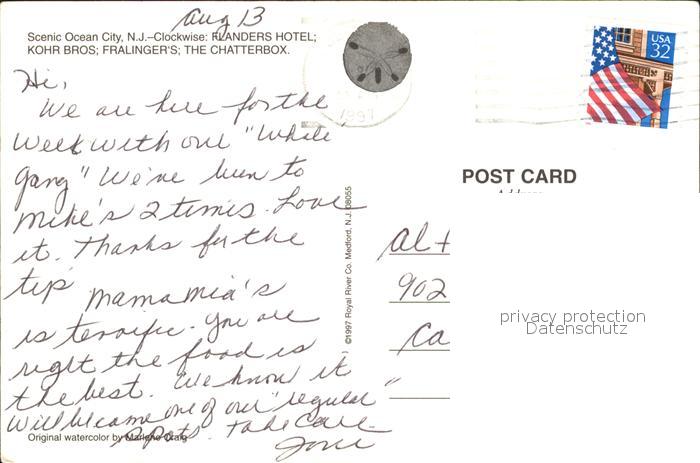 Aug 13
Scenic Ocean City, N.J.–Clockwise: FLANDERS HOTEL;
KOHR BROS; FRALINGER'S; THE CHATTERBOX.
Hi,
We are here for the
week with our "Whole
gang" We've been to
Mike's 2 times. Love
it. Thanks for the
tip
Mama Mia's
is terrific. You are
right the food is
the best. We know it
will become one of our "regular"
spots. Take care.
Original watercolor by Marlene Craig
©1997 Royal River Co. Medford, N.J. 08055
1997
USA
32
POST CARD
Address
Al +
902
Ca
privacy protection
Datenschutz